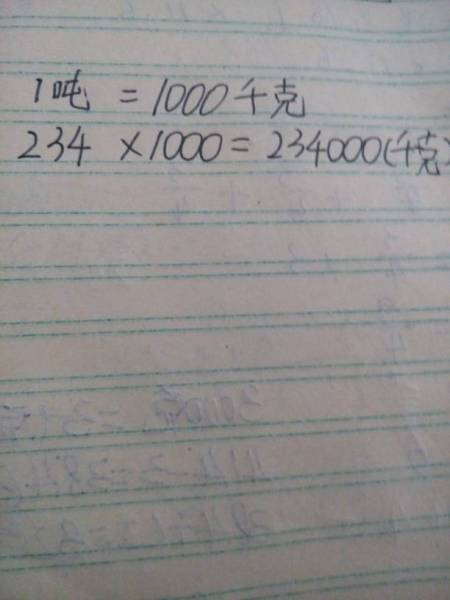 1吨 = 1000千克
234 ×1000 = 234000(千克)